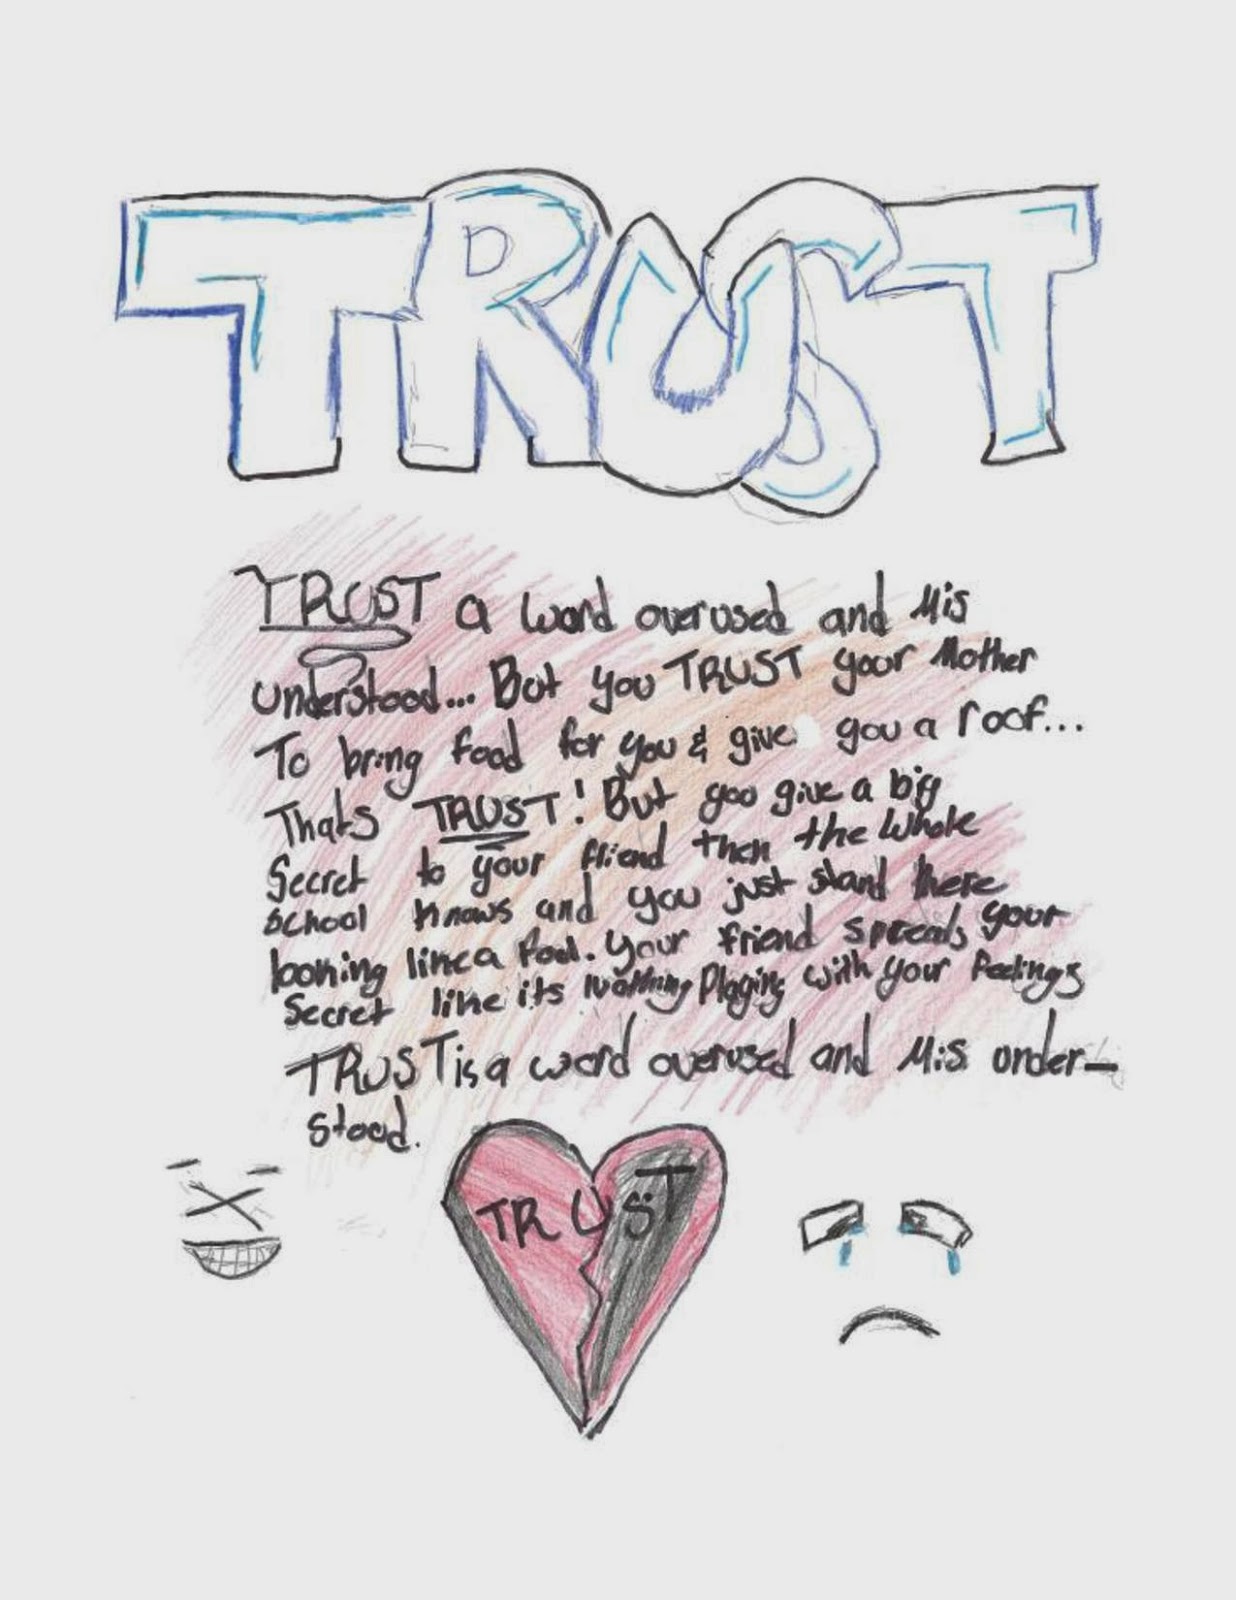 TRUST
TRUST a word overused and Mis
understood... But you TRUST your Mother
To bring food for you & give you a roof...
Thats TRUST! But you give a big
Secret to your friend then the whole
school knows and you just stand there
looking like a fool. Your friend spreads your
Secret like its Nothing Playing with your feelings
TRUST is a word overused and Mis under-
stood.
TRUST